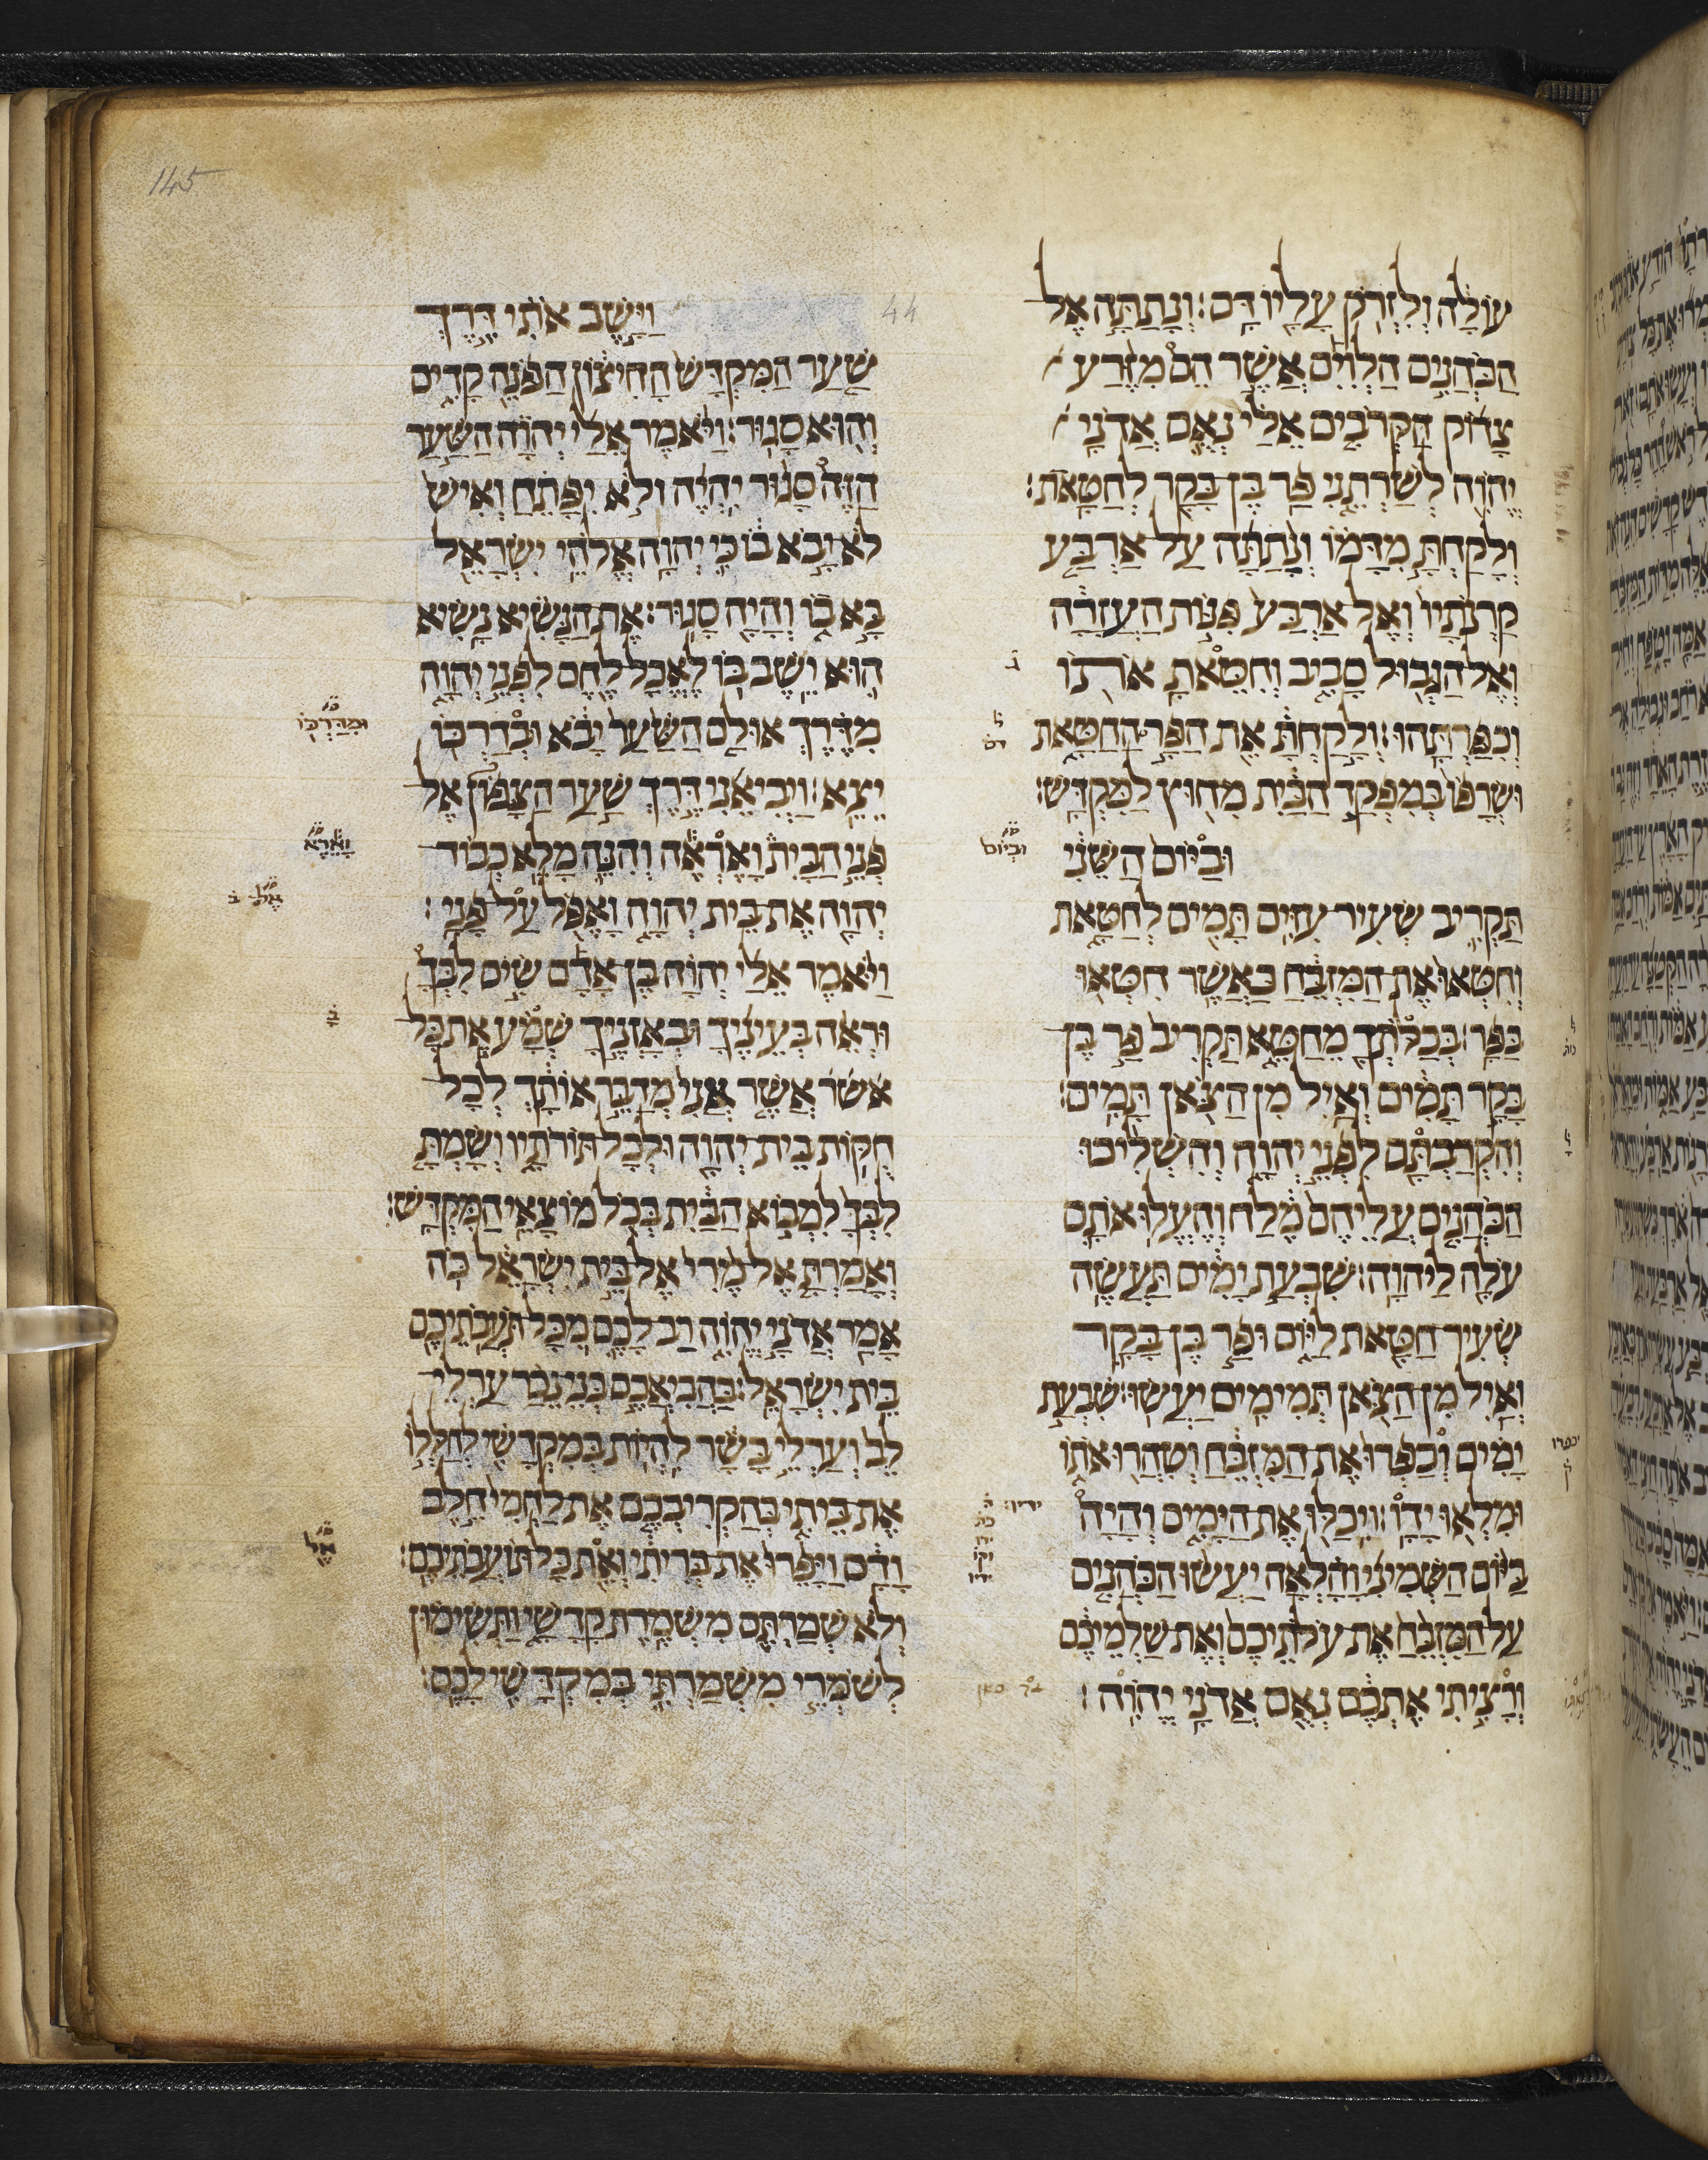 145
44
עוֹלָה וְלִזְרֹק עָלָיו דָּם׃ וְנָתַתָּה אֶל
הַכֹּהֲנִים הַלְוִיִּם אֲשֶׁר הֵם מִזֶּרַע
צָדוֹק הַקְּרֹבִים אֵלַי נְאֻם אֲדֹנָי
יֱהֹוִה לְשָׁרְתֵנִי פַּר בֶּן בָּקָר לְחַטָּאת׃
וְלָקַחְתָּ מִדָּמוֹ וְנָתַתָּה עַל אַרְבַּע
קַרְנֹתָיו וְאֶל אַרְבַּע פִּנּוֹת הָעֲזָרָה
וְאֶל הַגְּבוּל סָבִיב וְחִטֵּאתָ אוֹתוֹ
וְכִפַּרְתָּהוּ׃ וְלָקַחְתָּ אֵת הַפָּר הַחַטָּאת
וּשְׂרָפוֹ בְּמִפְקַד הַבַּיִת מִחוּץ לַמִּקְדָּשׁ׃
וּבַיּוֹם הַשֵּׁנִי
תַּקְרִיב שְׂעִיר עִזִּים תָּמִים לְחַטָּאת
וְחִטְּאוּ אֶת הַמִּזְבֵּחַ כַּאֲשֶׁר חִטְּאוּ
בַּפָּר׃ בְּכַלּוֹתְךָ מֵחַטֵּא תַּקְרִיב פַּר בֶּן
בָּקָר תָּמִים וְאַיִל מִן הַצֹּאן תָּמִים׃
וְהִקְרַבְתָּם לִפְנֵי יְהוָה וְהִשְׁלִיכוּ
הַכֹּהֲנִים עֲלֵיהֶם מֶלַח וְהֶעֱלוּ אֹתָם
עֹלָה לַיהוָה׃ שִׁבְעַת יָמִים תַּעֲשֶׂה
שְׂעִיר חַטָּאת לַיּוֹם וּפַר בֶּן בָּקָר
וְאַיִל מִן הַצֹּאן תְּמִימִים יַעֲשׂוּ׃ שִׁבְעַת
יָמִים וְכִפְּרוּ אֶת הַמִּזְבֵּחַ וְטִהֲרוּ אֹתוֹ
וּמִלְאוּ יָדָו׃ וִיכַלּוּ אֶת הַיָּמִים וְהָיָה
בַיּוֹם הַשְּׁמִינִי וָהָלְאָה יַעֲשׂוּ הַכֹּהֲנִים
עַל הַמִּזְבֵּחַ אֶת עֹלֹתֵיכֶם וְאֶת שַׁלְמֵיכֶם
וְרָצִיתִי אֶתְכֶם נְאֻם אֲדֹנָי יֱהֹוִה׃
וַיָּשֶׁב אֹתִי דֶּרֶךְ
שַׁעַר הַמִּקְדָּשׁ הַחִיצוֹן הַפֹּנֶה קָדִים
וְהוּא סָגוּר׃ וַיֹּאמֶר אֵלַי יְהוָה הַשַּׁעַר
הַזֶּה סָגוּר יִהְיֶה וְלֹא יִפָּתֵחַ וְאִישׁ
לֹא יָבֹא בוֹ כִּי יְהוָה אֱלֹהֵי יִשְׂרָאֵל
בָּא בוֹ וְהָיָה סָגוּר׃ אֶת הַנָּשִׂיא נָשִׂיא
הוּא יֵשֶׁב בּוֹ לֶאֱכָל לֶחֶם לִפְנֵי יְהוָה
מִדֶּרֶךְ אוּלָם הַשַּׁעַר יָבֹא וּבְדַרְכּוֹ
יֵצֵא׃ וַיְבִיאֵנִי דֶּרֶךְ שַׁעַר הַצָּפוֹן אֶל
פְּנֵי הַבַּיִת וָאֶרְאֶה וְהִנֵּה מָלֵא כְבוֹד
יְהוָה אֶת בֵּית יְהוָה וָאֶפֹּל עַל פָּנָי׃
וַיֹּאמֶר אֵלַי יְהוָה בֶּן אָדָם שִׂים לִבְּךָ
וּרְאֵה בְעֵינֶיךָ וּבְאָזְנֶיךָ שְּׁמָע אֵת כָּל
אשר אֲשֶׁר אֲנִי מְדַבֵּר אוֹתָךְ לְכָל
חֻקּוֹת בֵּית יְהוָה וּלְכָל תּוֹרֹתָיו וְשַׂמְתָּ
לִבְּךָ לִמְבוֹא הַבַּיִת בְּכֹל מוֹצָאֵי הַמִּקְדָּשׁ׃
וְאָמַרְתָּ אֶל מֶרִי אֶל בֵּית יִשְׂרָאֵל כֹּה
אָמַר אֲדֹנָי יֱהֹוִה רַב לָכֶם מִכָּל תּוֹעֲבֹתֵיכֶם
בֵּית יִשְׂרָאֵל׃ בַּהֲבִיאֲכֶם בְּנֵי נֵכָר עַרְלֵי
לֵב וְעַרְלֵי בָשָׂר לִהְיוֹת בְּמִקְדָּשִׁי לְחַלְּלוֹ
אֶת בֵּיתִי בְּהַקְרִיבְכֶם אֶת לַחְמִי חֵלֶב
וָדָם וַיָּפֵרוּ אֶת בְּרִיתִי וְאֶת כָּל תּוֹעֲבֹתֵיכֶם׃
וְלֹא שְׁמַרְתֶּם מִשְׁמֶרֶת קָדָשָׁי וַתְּשִׂימוּן
לְשֹׁמְרֵי מִשְׁמַרְתִּי בְּמִקְדָּשִׁי לָכֶם׃